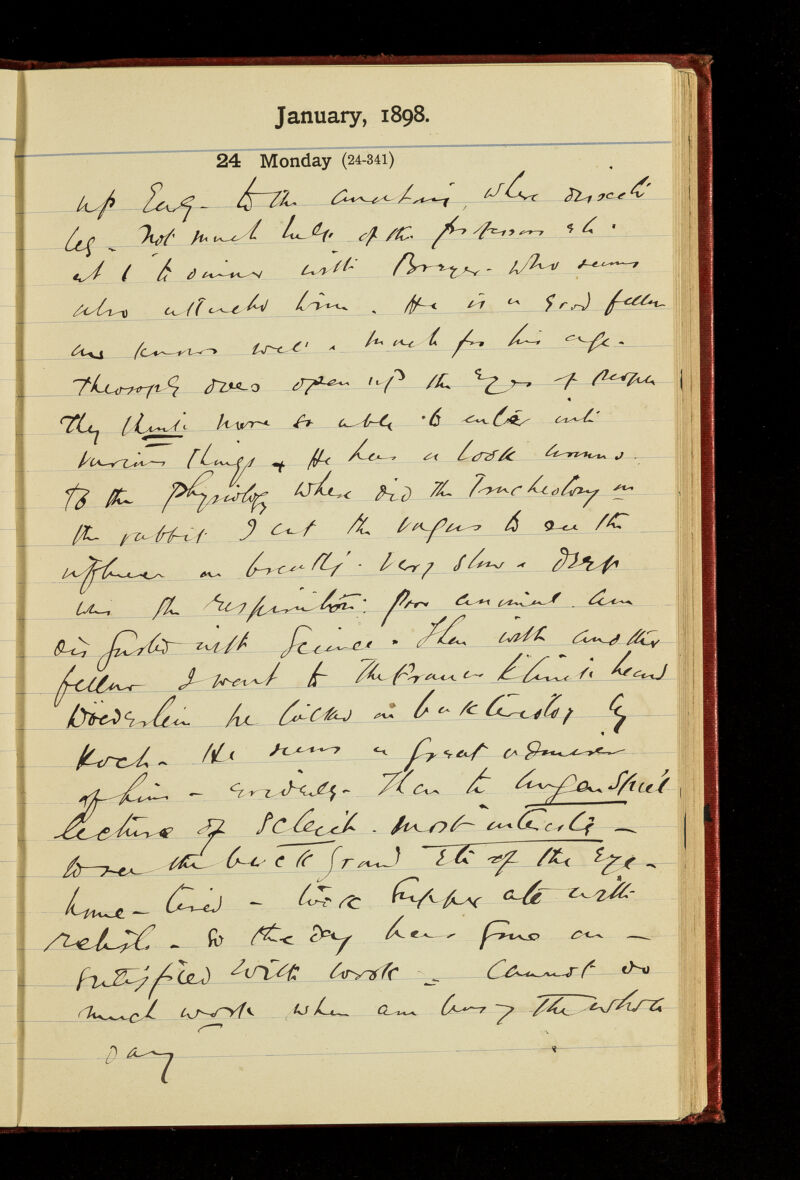 January, 1898.
24 Monday (24-341)
up Early - to the anatomy, where dissect
leg - Not much help of the professors etc.
at 1 to dinner with Breyer - who seems
also attached him. He is a good fellow
and knows well & much for his age.
Theosophy does open up the Eyes of people
They think more so able to enter into
various things + He has a look around.
To the Physiology where did the Tracheotomy on
the rabbit I cut the vagus to see the
influence on breath. Very slow & deep
was the respiration. Poor animal. am
disgusted with Science. Then with another
fellow I went to The Frauen Klinik heard
Döederlein he talked on bakteriology by
Koch - He seems a great admirer
of him - evidently - Then to Augenspiel
lecture of Schleich. most interesting -
to see the back ground Etc of the Eye -
home - tired - took Supper ate with
relish - So the day has gone on -
satisfied with work - Cannot do
much work when am busy The whole
day